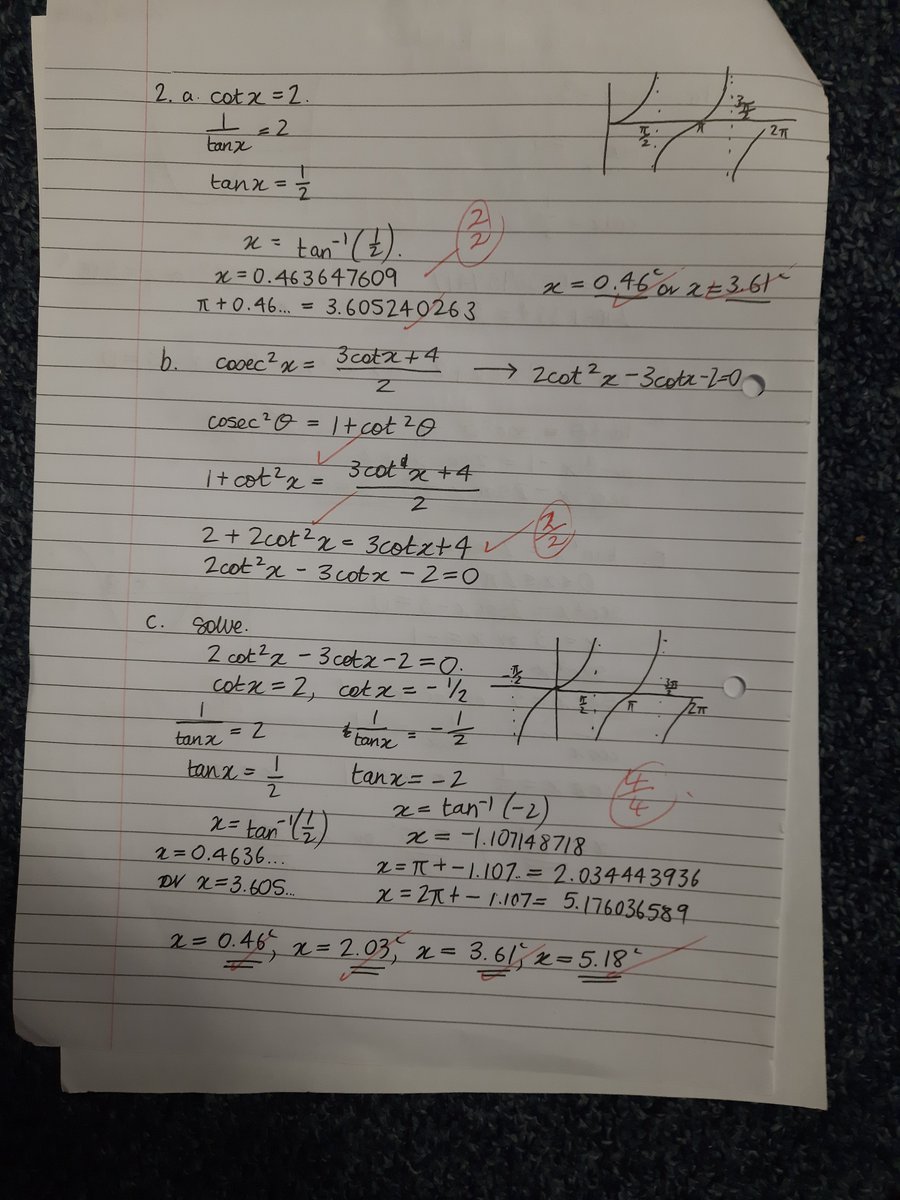 2. a. cotx = 2.
1/tanx = 2
tanx = 1/2
π/2 π 3π/2 2π
x = tan⁻¹(1/2).
2/2
x = 0.463647609
π + 0.46... = 3.605240263
x = 0.46ᶜ or x = 3.61ᶜ
b. cosec²x = (3cotx + 4)/2 → 2cot²x - 3cotx - 2 = 0
cosec²θ = 1 + cot²θ
1 + cot²x = (3cot x + 4)/2
2 + 2cot²x = 3cotx + 4
2/2
2cot²x - 3cotx - 2 = 0
c. solve.
2cot²x - 3cotx - 2 = 0.
cotx = 2, cotx = -1/2
-π/2 π/2 π 3π/2 2π
1/tanx = 2 1/tanx = -1/2
tanx = 1/2 tanx = -2
4/4
x = tan⁻¹(1/2) x = tan⁻¹(-2)
x = -1.107148718
x = 0.4636... x = π + -1.107.. = 2.034443936
or x = 3.605... x = 2π + -1.107 = 5.176036589
x = 0.46ᶜ, x = 2.03ᶜ, x = 3.61ᶜ, x = 5.18ᶜ